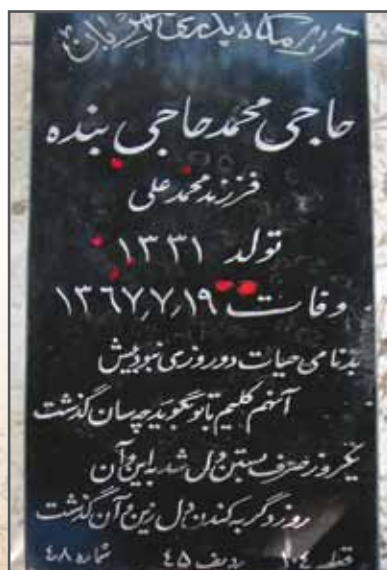 آرامگاه پدری مهربان
حاجی محمد حاجی بنده
فرزند محمد علی
تولد ۱۳۳۱
وفات ۱۳۶۷٫۷٫۱۹
بدنامی حیات دو روزی نبود بیش
آنهم کلیم با تو بگویم چسان گذشت
یکروز صرف بستن دل شد به این و آن
روز دگر به کندن دل زین و آن گذشت
قطعه ۱۰۴ ردیف ۴۵ شماره ۴۸